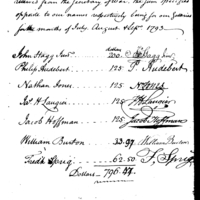 received from the Secretary of War, the sums specified
opposite to our names respectively being for our Salaries
for the months of July August & Sept. 1793.
dollars
John Stagg Junr 200 Jno Stagg Junr
Philip Audebert 125 P. Audebert
Nathan Jones 125 N Jones
Jos H. Sangier 125
Jacob Hoffman 125 Jacob Hoffman
William Burton 33.97 William Burton
Fredk Sprig 62.50 F. Sprig
Dollars 796.47